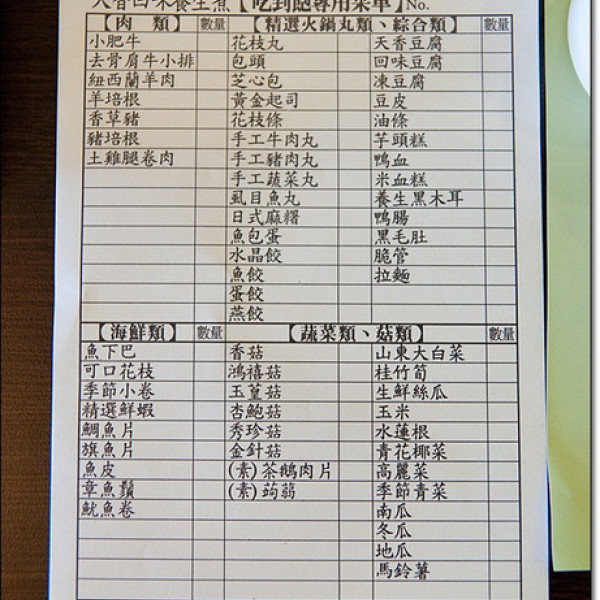 天香回味養生煮【吃到飽專用菜單】No.
【肉 類】 數量 【精選火鍋丸類、綜合類】 數量
小肥牛 花枝丸 天香豆腐
去骨肩牛小排 包頭 回味豆腐
紐西蘭羊肉 芝心包 凍豆腐
羊培根 黃金起司 豆皮
香草豬 花枝條 油條
豬培根 手工牛肉丸 芋頭糕
土雞腿卷肉 手工豬肉丸 鴨血
手工蔬菜丸 米血糕
虱目魚丸 養生黑木耳
日式麻糬 鴨腸
魚包蛋 黑毛肚
水晶餃 脆管
魚餃 拉麵
蛋餃
燕餃
【海鮮類】 數量 【蔬菜類、菇類】 數量
魚下巴 香菇 山東大白菜
可口花枝 鴻禧菇 桂竹筍
季節小卷 玉蕈菇 生鮮絲瓜
精選鮮蝦 杏鮑菇 玉米
鯛魚片 秀珍菇 水蓮根
旗魚片 金針菇 青花椰菜
魚皮 (素)茶鵝肉片 高麗菜
章魚鬚 (素)蒟蒻 季節青菜
魷魚卷 南瓜
冬瓜
地瓜
馬鈴薯